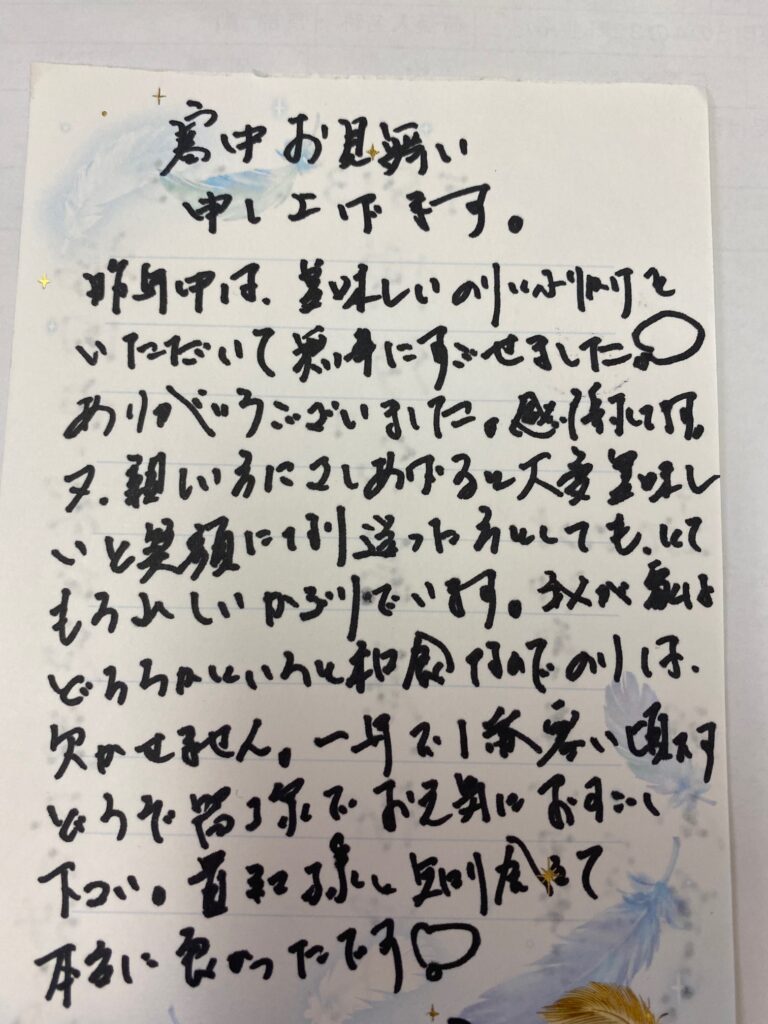 寒中お見舞い
申し上げます。
昨年中は、美味しいのりふりかけを
いただいて無事にすごせました。
ありがとうございました。感謝してます。
又、親しい方にさしあげると大変美味し
いと笑顔になり送った方としても、とて
もうれしいかぎりでいます。我が家は
どちらかというと和食なのでのりは、
欠かせません。一年で1番寒い頃です
どうぞ皆様でお元気におすごし
下さい。様と知り合えて
本当に良かったです